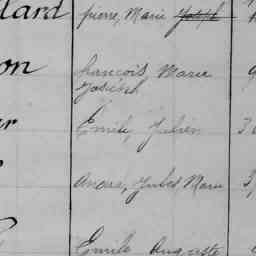 lard pierre, Marie Joseph
on francois, Marie
Joseph
er Emile, Julien
André, Jules Marie
Emile Auguste